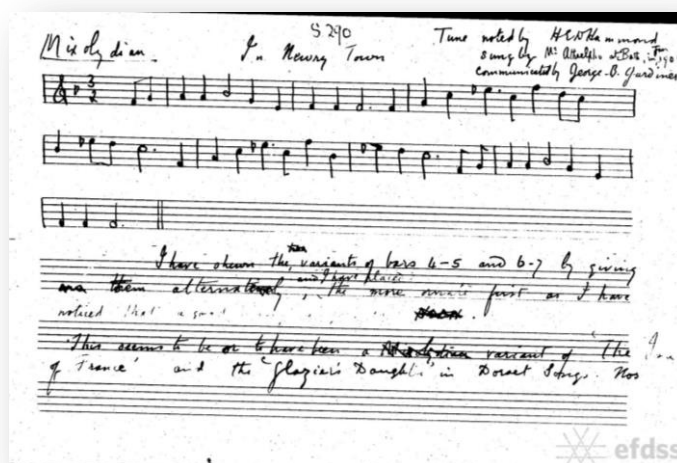 S.290
Mixolydian. In Newry Town
Tune noted by H E D Hammond
sung by Mr
communicated by George B. Gardiner
3
2
I have shewn the variants of bars 4-5 and 6-7 by giving
them alternately, and I have placed the more ornate first as I have
noticed that a good
This seems to be or to have been a Mixolydian variant of 'The
of France' and the 'Glazier's Daughter' in Dorset Songs. Nos
efdss